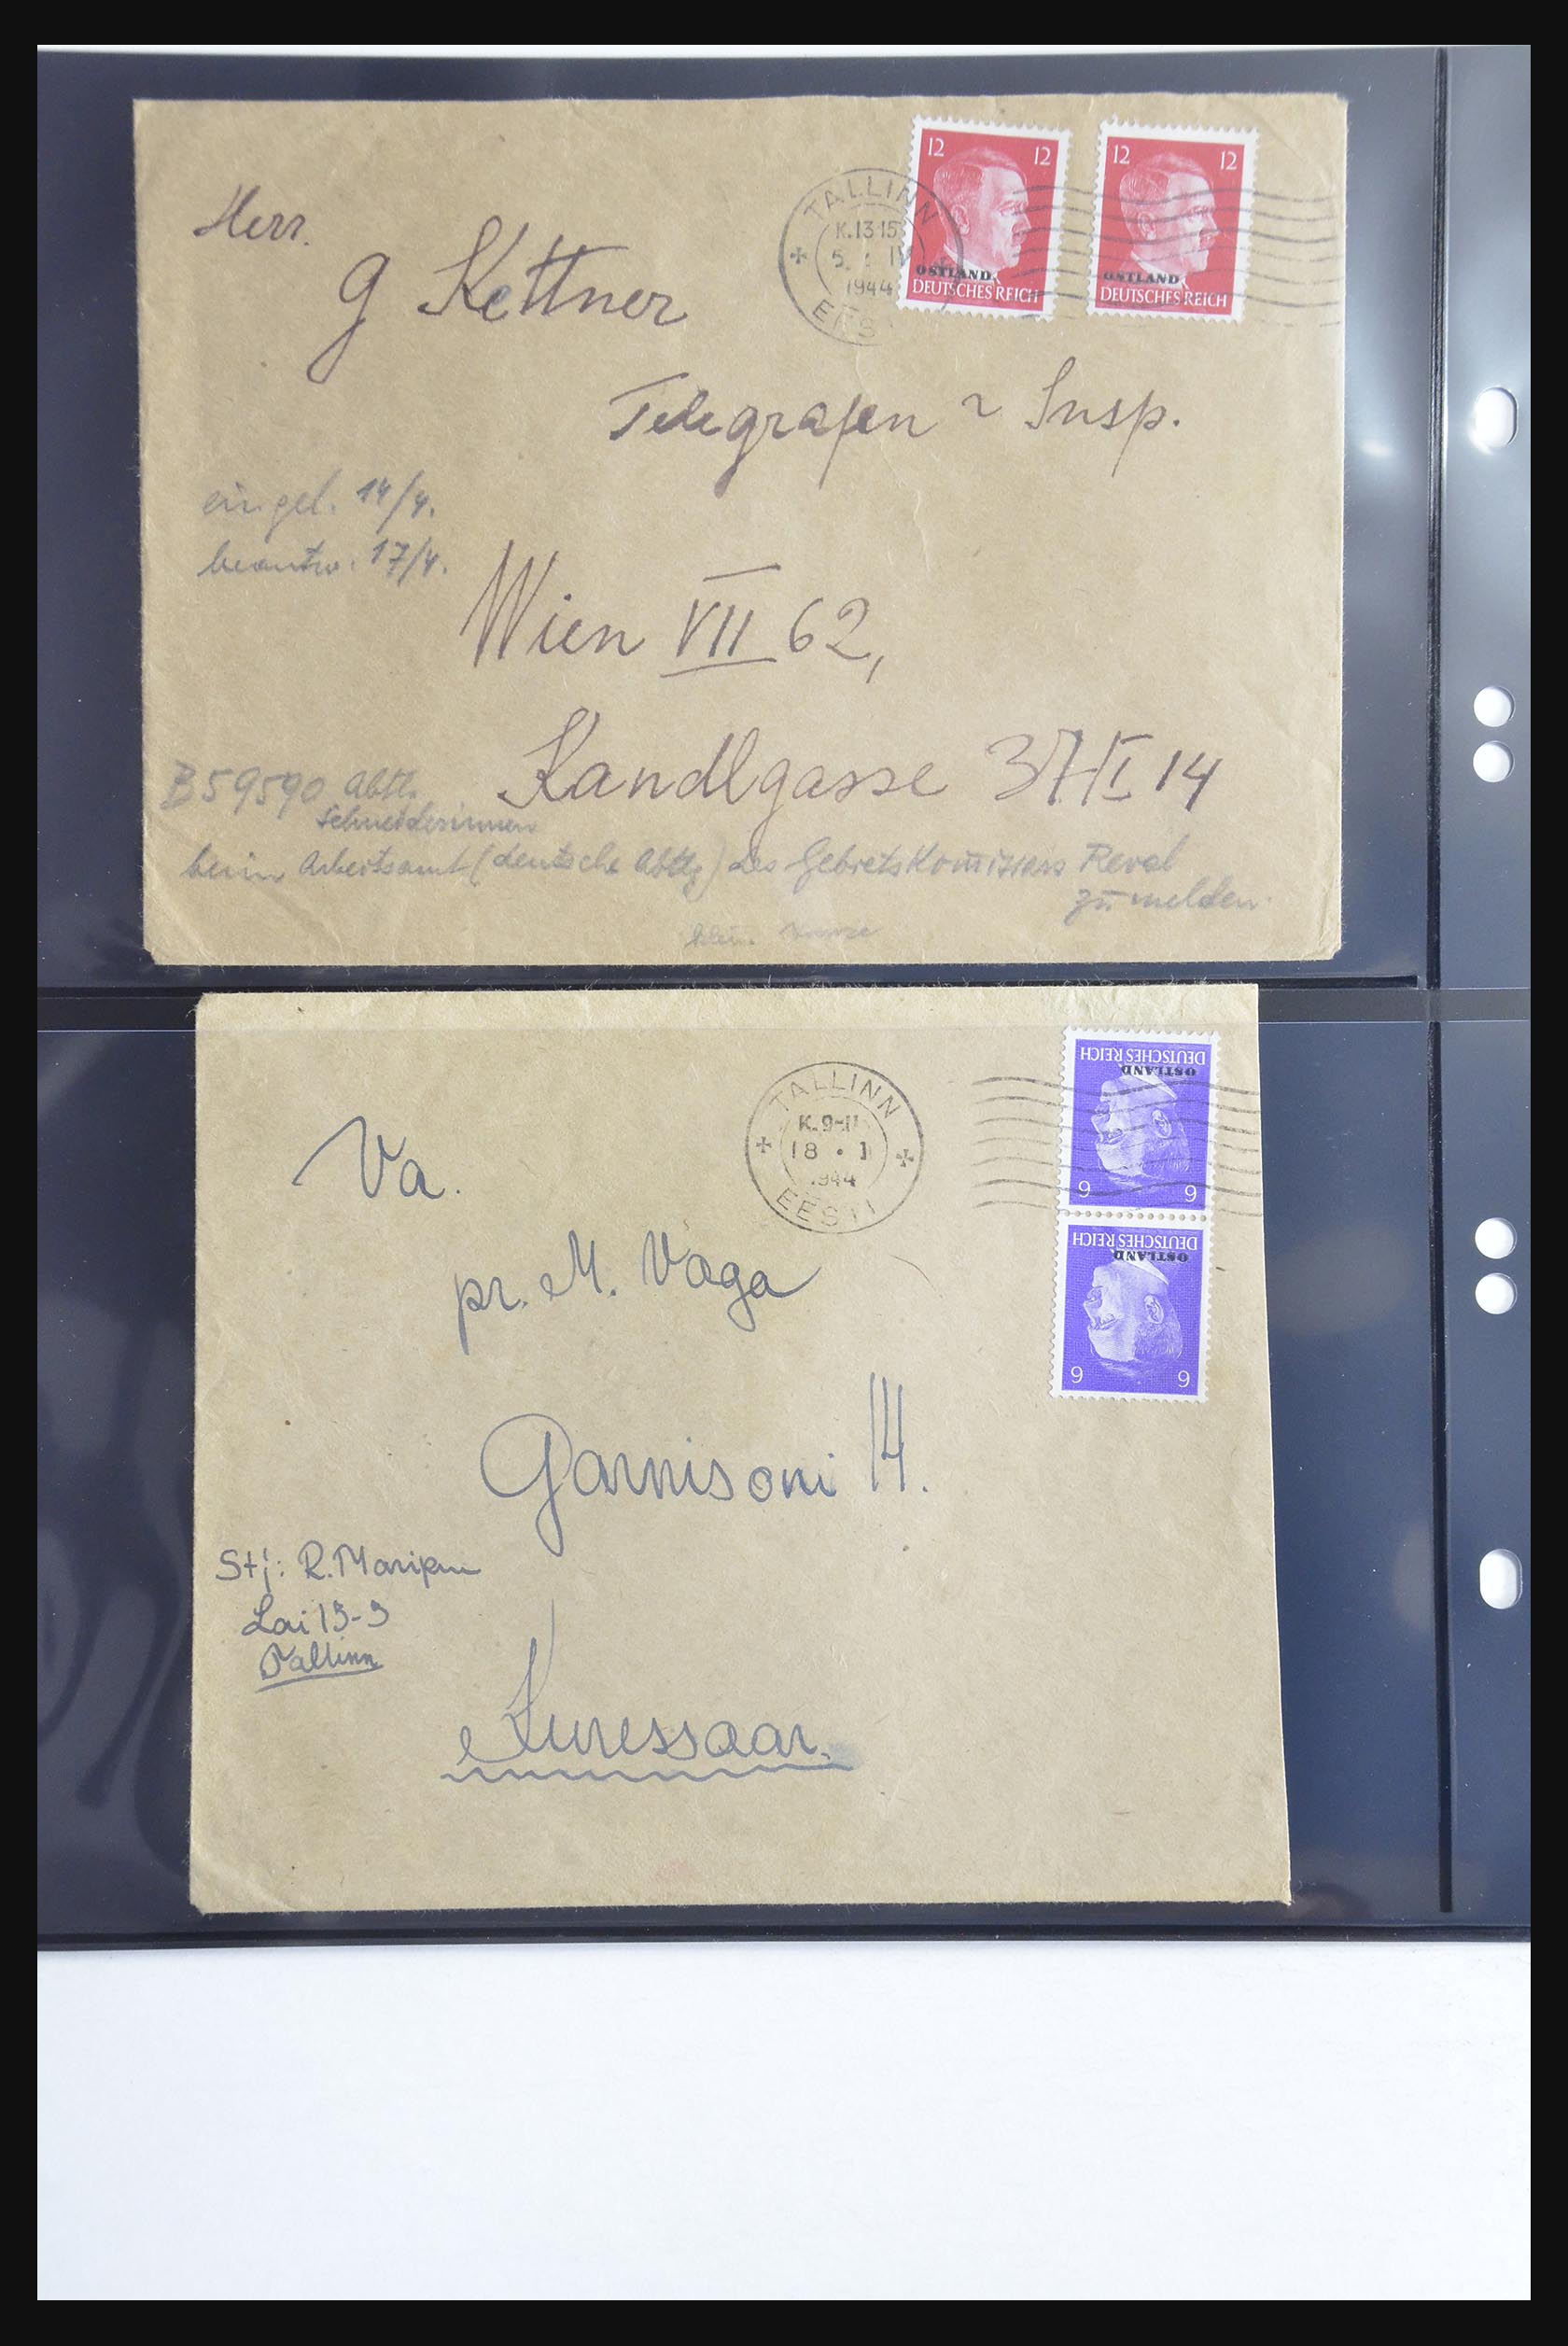 TALLINN
K.13-15
5. IV
1944
EESTI
12 12
OSTLAND
DEUTSCHES REICH
12 12
OSTLAND
DEUTSCHES REICH
Herr.
G Kettner
Telegrafen ~ Insp.
eingel. 14/4.
beantw. 17/4.
Wien VII 62,
Kandlgasse 37/I 14
B59590 Abtlg.
Schneiderinnen
beim Arbeitsamt (deutsche Abtlg) des Gebietskomissars Reval
zu melden.
TALLINN
K.9-11
18 · I
1944
EESTI
DEUTSCHES REICH
OSTLAND
6 6
DEUTSCHES REICH
OSTLAND
6 6
Va.
pr. M. Vaga
Garnisoni 14.
Stj: R.
Lai
Tallinn
Kuressaar.